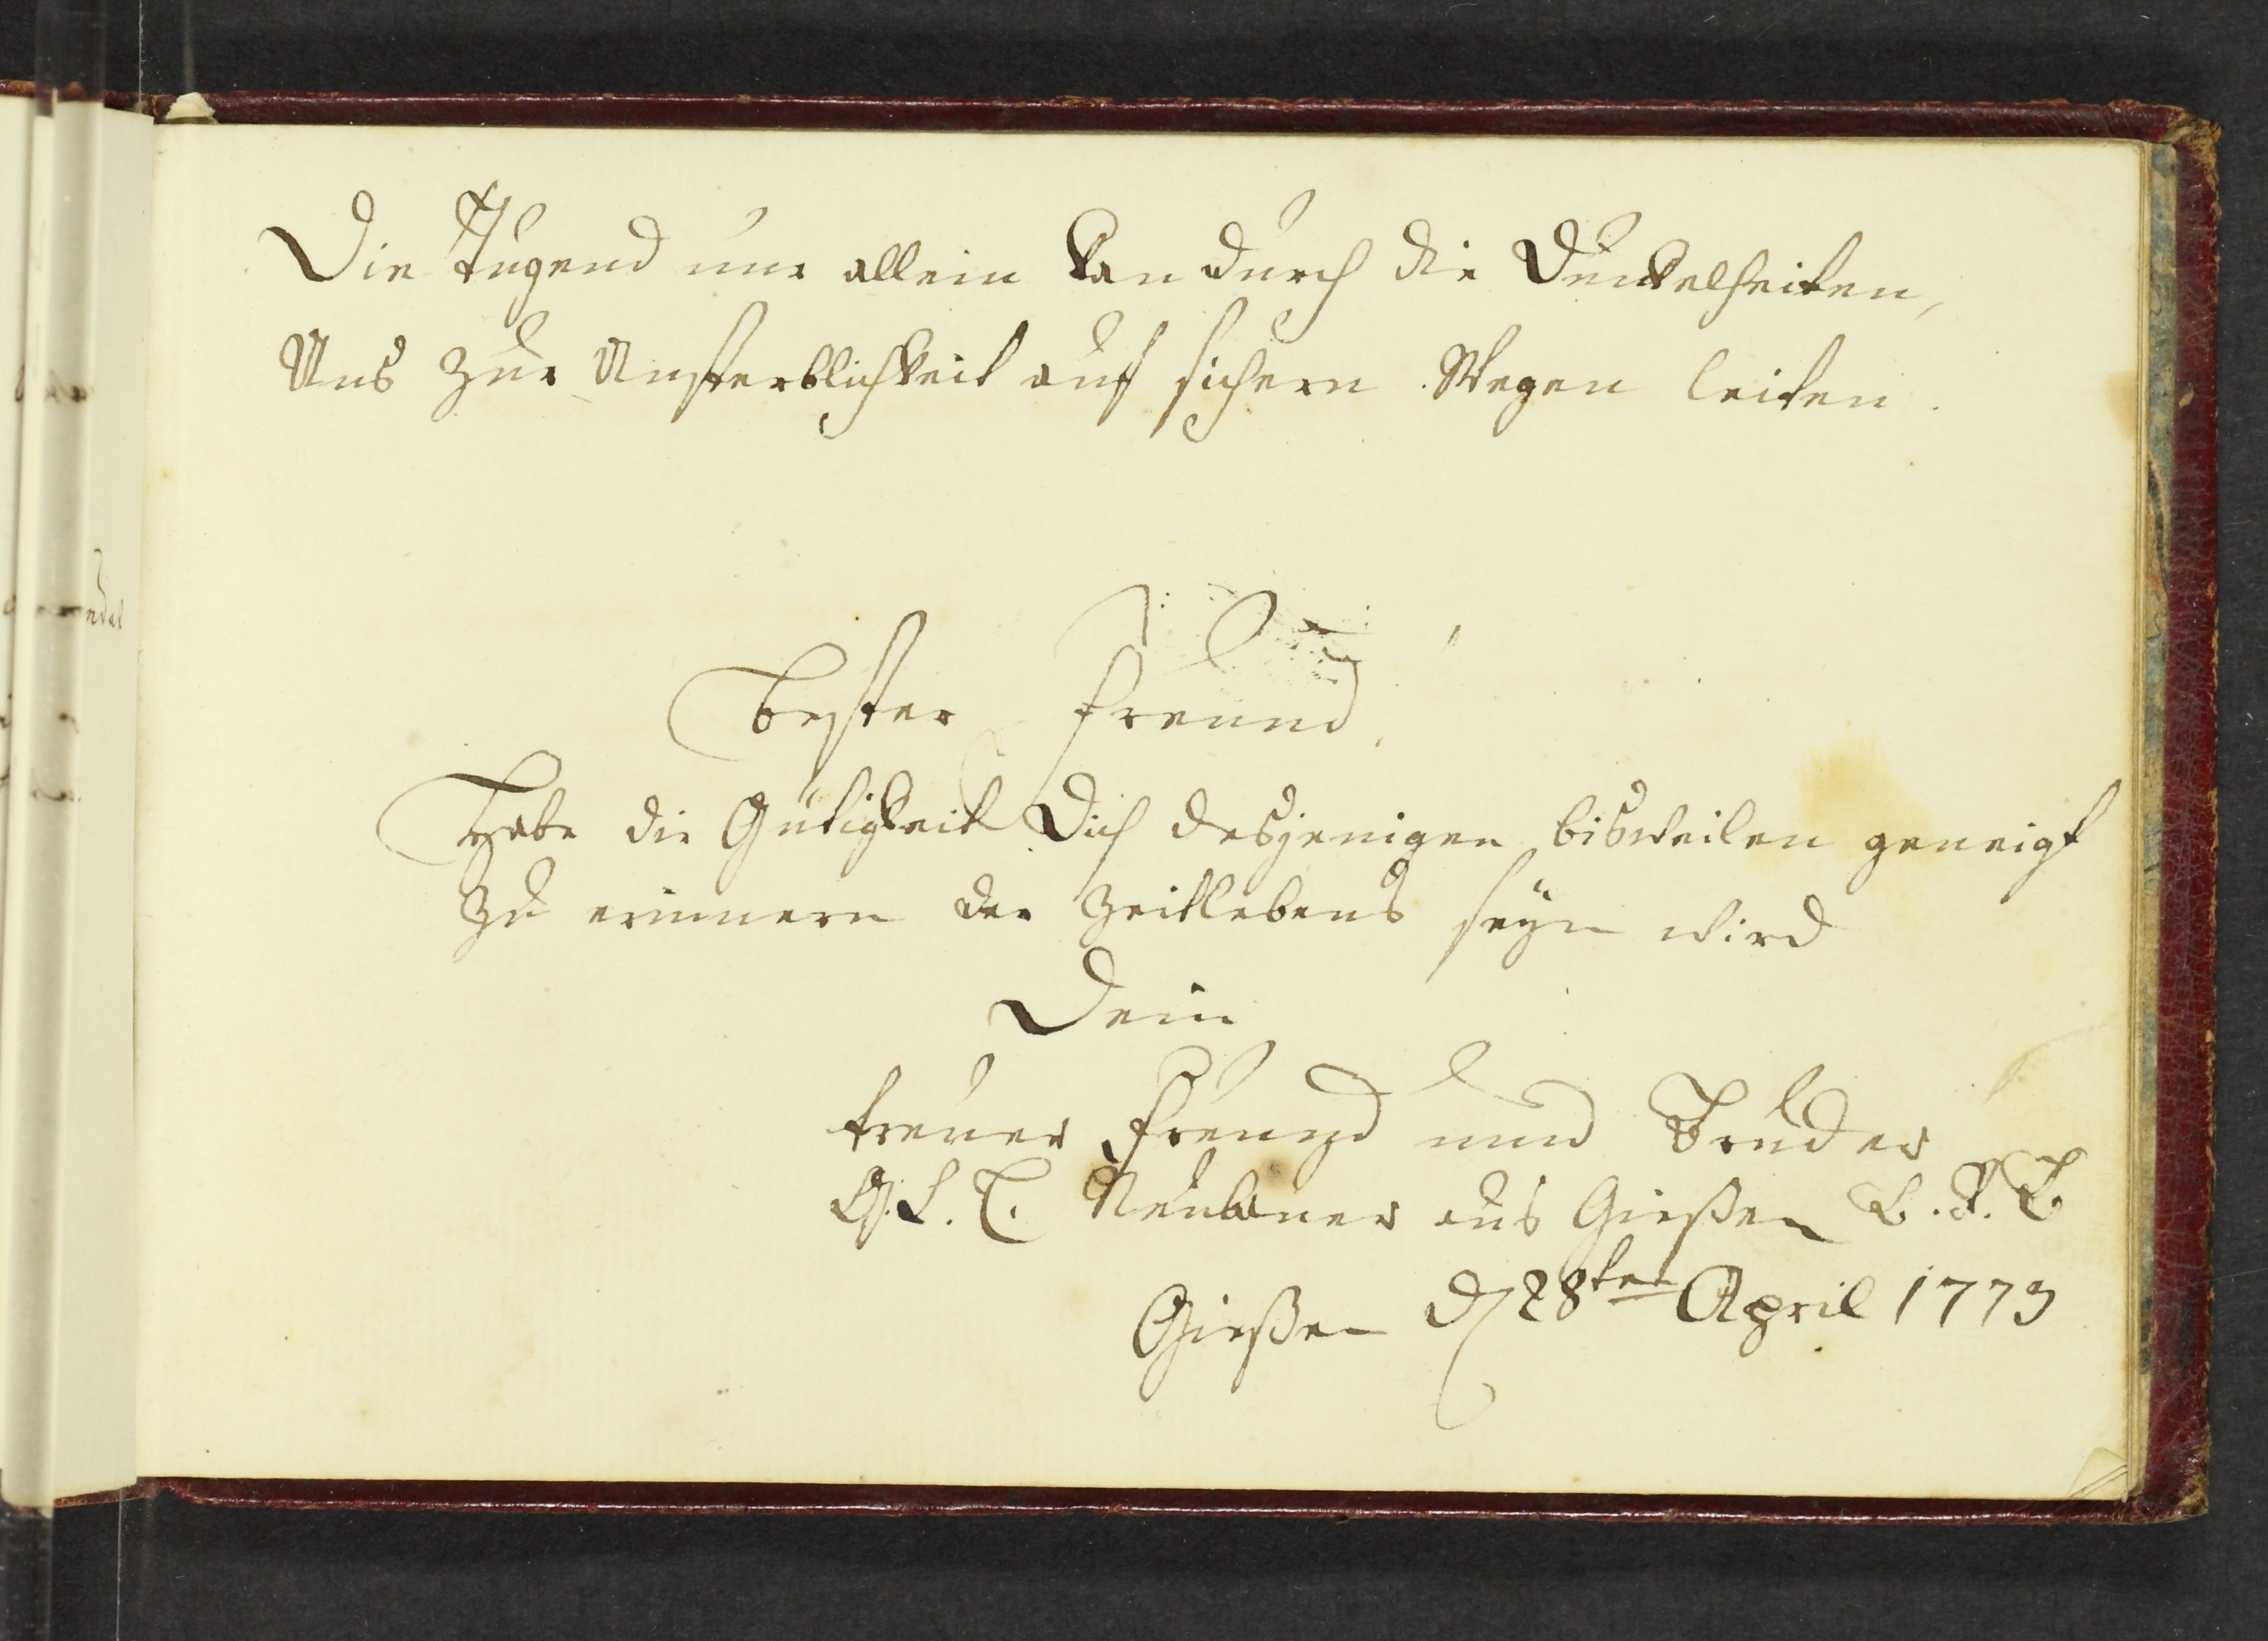 Die Tugend nur allein kan durch die Dunkelheiten,
Uns zur Unsterblichkeit auf sichern Wegen leiten.
Bester Freund!
Habe die Gütigkeit Dich desjenigen bisweilen geneigt
zu erinnern der Zeitlebens seyn wird
Dein
treuer Freund und Bruder
G. L. C. Neubauer aus Gießen
Gießen d 28ten April 1773